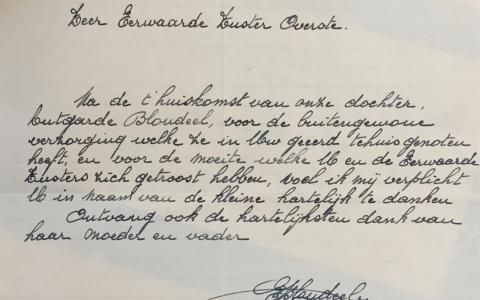 Zeer Eerwaarde Zuster Overste.
Na de t'huiskomst van onze dochter,
Lutgarde Blondeel, voor de buitengewone
verzorging welke ze in Uw geëerd tehuis genoten
heeft, en voor de moeite welke U en de Eerwaarde
Zusters zich getroost hebben, voel ik mij verplicht
U in naam van de kleine hartelijk te danken
Ontvang ook de hartelijksten dank van
haar moeder en vader
Blondeel